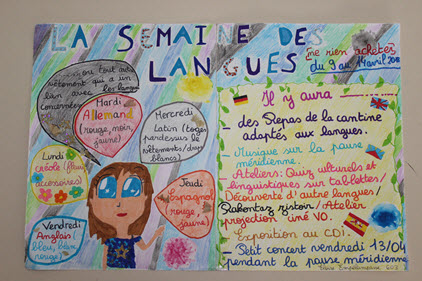 LA SEMAINE DES
LANGUES
(ne rien acheter)
du 9 au 14 avril
Mardi
Allemand
(rouge, noir,
jaune)
Mercredi
Latin (toges
par dessus les
vêtements/draps
blancs)
Lundi
créole (fleurs
accessoires)
Jeudi
Espagnol
rouge,
jaune)
Vendredi
Anglais (
bleu, blanc,
rouge)
Il y aura
- des Repas de la cantine
adaptés aux langues.
- Musique sur la pause
méridienne.
- Ateliers: Quiz culturels et
linguistiques sur tablettes/
Découverte d'autres langues/
Rakontaz zistoir/Atelier
projection ciné VO.
- Exposition au CDI.
- Petit concert vendredi 13/04
pendant la pause méridienne